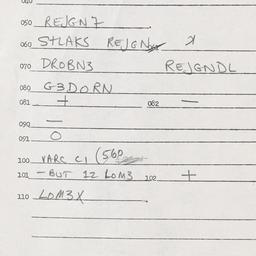 050 REJGN7
060 STLAKS REJGN
070 DROBN3 REJGNDL
080 G3DORN
081 + 082 —
090 —
091 O
100 VARC C1 (560
101 - BUT 12 LOM3 100 +
110 LOM3X